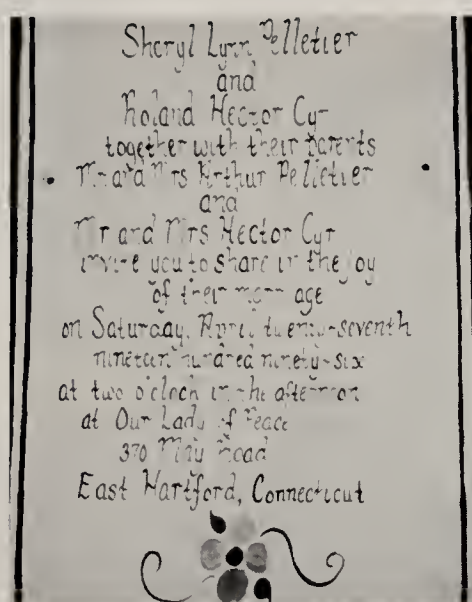 Sheryl Lynn Pelletier
and
Roland Hector Cyr
together with their parents
Mr and Mrs Arthur Pelletier
and
Mr and Mrs Hector Cyr
invite you to share in the joy
of their marriage
on Saturday, April twenty-seventh
nineteen hundred ninety-six
at two o'clock in the afternoon
at Our Lady of Peace
370 May Road
East Hartford, Connecticut